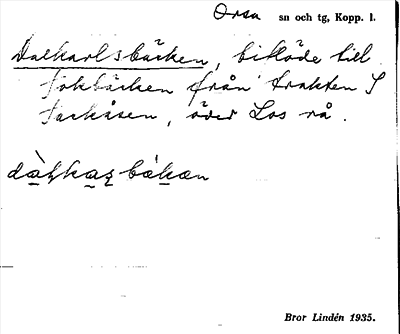 Orsa sn och tg, Kopp. l.
Dalkarlsbäcken, biflöde till
Fokbäcken från trakten S
Korkåsen, över Los rå.
dàlkaʂbäkæn
Bror Lindén 1935.